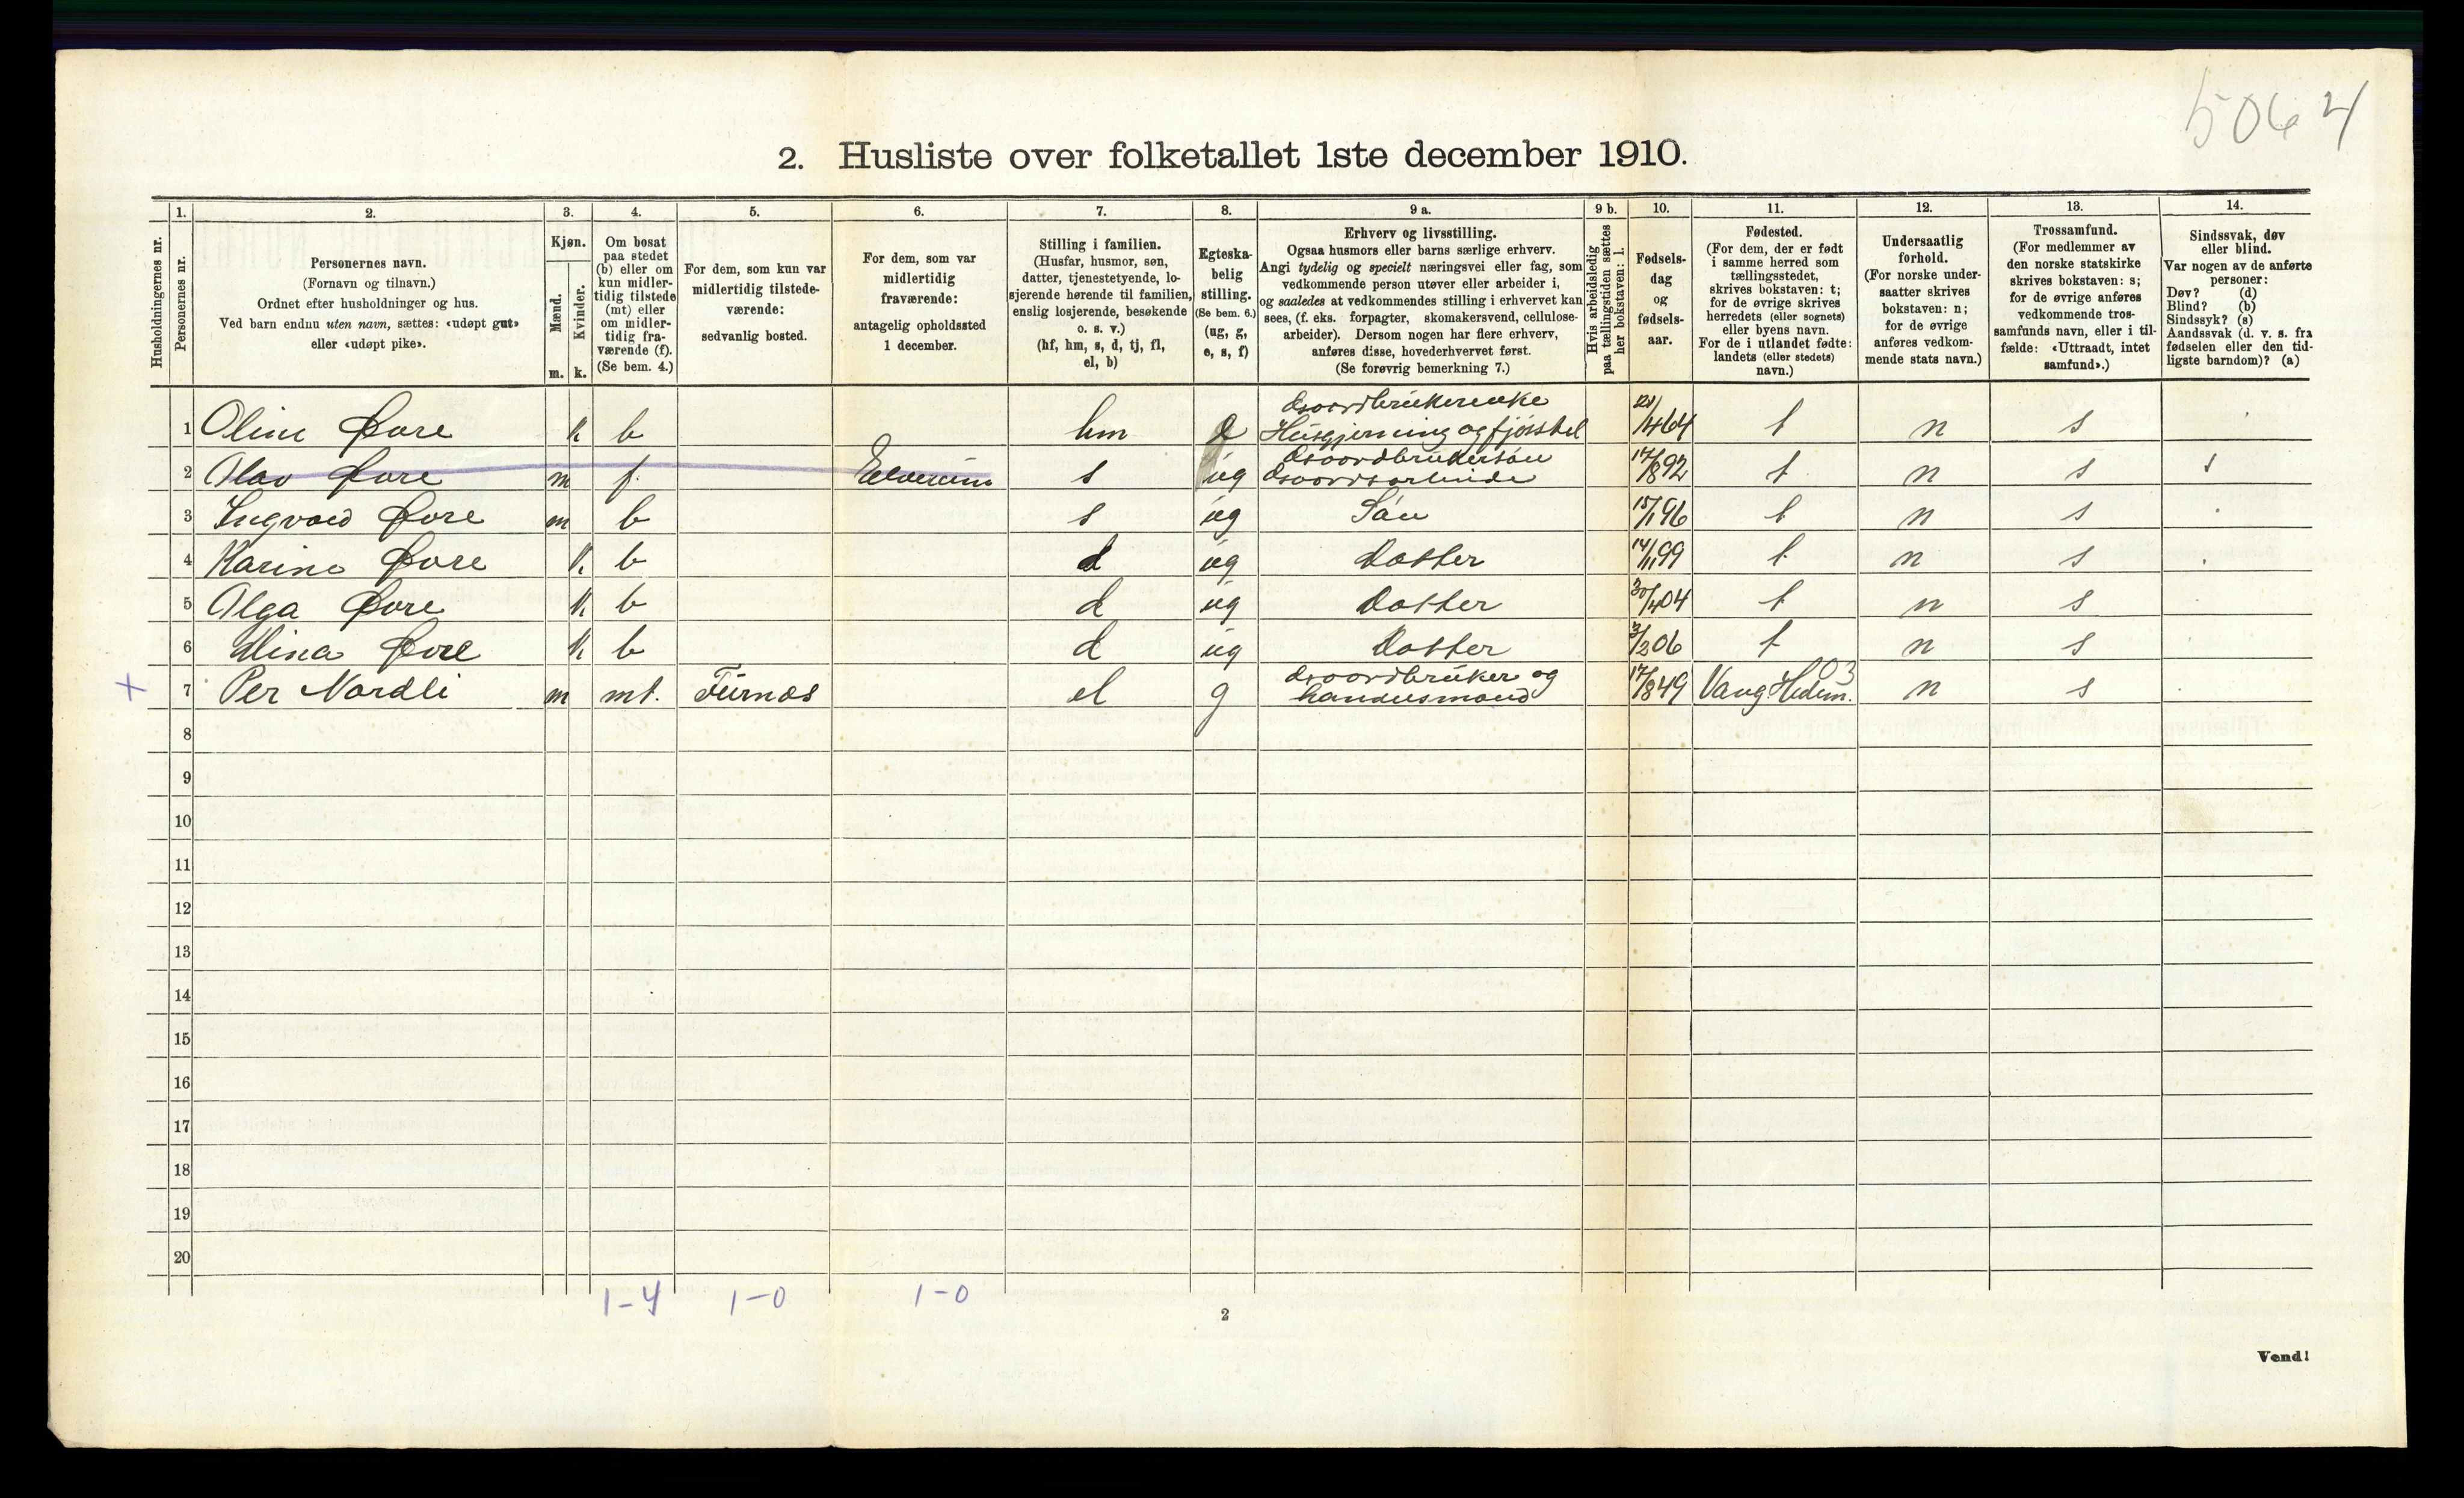 5064
2. Husliste over folketallet 1ste december 1910.
Husholdningernes nr.
1.
Personernes nr.
2.
Personernes navn.
(Fornavn og tilnavn.)
Ordnet efter husholdninger og hus.
Ved barn endnu uten navn, sættes: «udøpt gut»
eller «udøpt pike».
3.
Kjøn.
Mænd.
Kvinder.
m. k.
4.
Om bosat
paa stedet
(b) eller om
kun midler-
tidig tilstede
(mt) eller
om midler-
tidig fra-
værende (f).
(Se bem. 4.)
5.
For dem, som kun var
midlertidig tilstede-
værende:
sedvanlig bosted.
6.
For dem, som var
midlertidig
fraværende:
antagelig opholdssted
1 december.
7.
Stilling i familien.
(Husfar, husmor, søn,
datter, tjenestetyende, lo-
sjerende hørende til familien,
enslig losjerende, besøkende
o. s. v.)
(hf, hm, s, d, tj, fl,
el, b)
8.
Egteska-
belig
stilling.
(Se bem. 6.)
(ug, g,
e, s, f)
9 a.
Erhverv og livsstilling.
Ogsaa husmors eller barns særlige erhverv.
Angi tydelig og specielt næringsvei eller fag, som
vedkommende person utøver eller arbeider i,
og saaledes at vedkommendes stilling i erhvervet kan
sees, (f. eks. forpagter, skomakersvend, cellulose-
arbeider). Dersom nogen har flere erhverv,
anføres disse, hovederhvervet først.
(Se forøvrig bemerkning 7.)
9 b.
Hvis arbeidsledig
paa tællingstiden sættes
her bokstaven: l.
10.
Fødsels-
dag
og
fødsels-
aar.
11.
Fødested.
(For dem, der er født
i samme herred som
tællingsstedet,
skrives bokstaven: t;
for de øvrige skrives
herredets (eller sognets)
eller byens navn.
For de i utlandet fødte:
landets (eller stedets)
navn.)
12.
Undersaatlig
forhold.
(For norske under-
saatter skrives
bokstaven: n;
for de øvrige
anføres vedkom-
mende stats navn.)
13.
Trossamfund.
(For medlemmer av
den norske statskirke
skrives bokstaven: s;
for de øvrige anføres
vedkommende tros-
samfunds navn, eller i til-
fælde: «Uttraadt, intet
samfund».)
14.
Sindssvak, døv
eller blind.
Var nogen av de anførte
personer:
Døv? (d)
Blind? (b)
Sindssyk? (s)
Aandssvak (d. v. s. fra
fødselen eller den tid-
ligste barndom)? (a)
1 Oline Øvre k b hm Husgjerning og fjøsstel 464 t n s
2 Olav Øvre m f Elverum s ug 17/8 92 t n s
3 Ingvald Øvre m b s ug Søn 15/1 96 t n s
4 Karine Øvre k b d ug Datter 14/11 99 t n s
5 Olga Øvre k b d ug Datter 30/4 04 t n s
6 Mina Øvre k b d ug Datter 3/2 06 t n s
03
+ 7 Per Nordli m mt. Furnes el g gaardbruker og 17/8 49 Vang Hedm. n s
8
9
10
11
12
13
14
15
16
17
18
19
20
1-4 1-0 1-0
2
Vend!